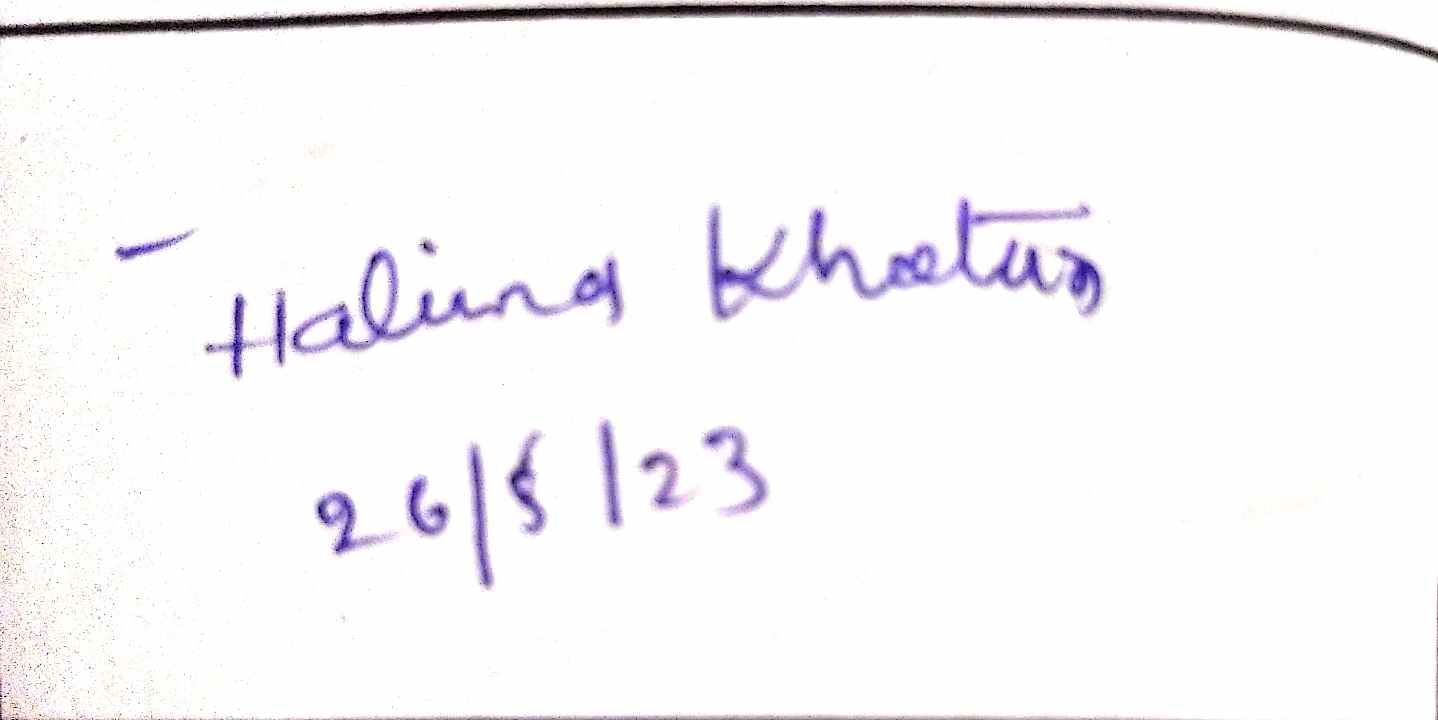 Halima Khatun
26/5/23